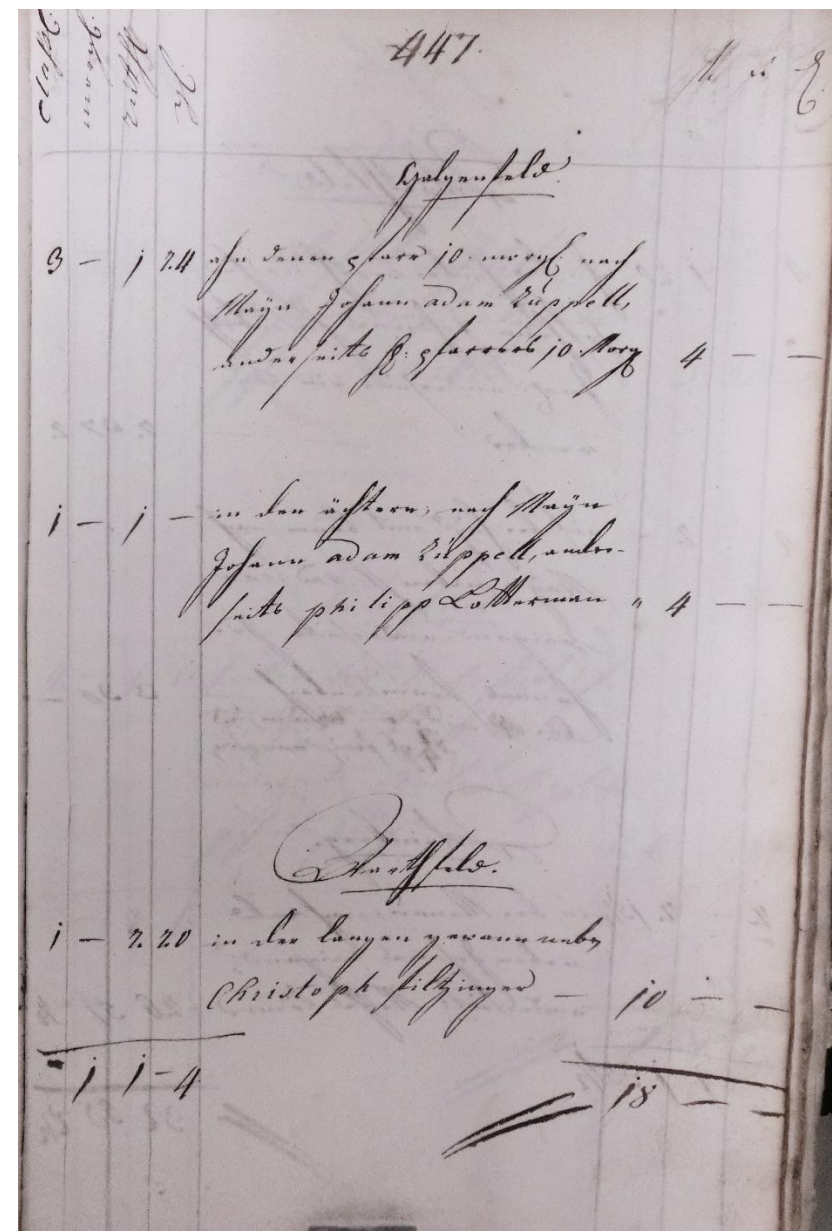 447.
Galgenfeld.
3 — 1 24 ahn denen pfarr 10. morg. nach
Mayn Johann adam Züppell,
anderseits H. pfarrers 10. Morg 4 — —
1 — 1 — in den ächtern, nach Mayn
Johann adam Züppell, ander-
seits philipp Lotterman " 4 — —
Warthfeld.
1 — 2. 20 in der langen gewann nebn
Christoph filtzinger — 10 — —
1 1 — 4 18 — —